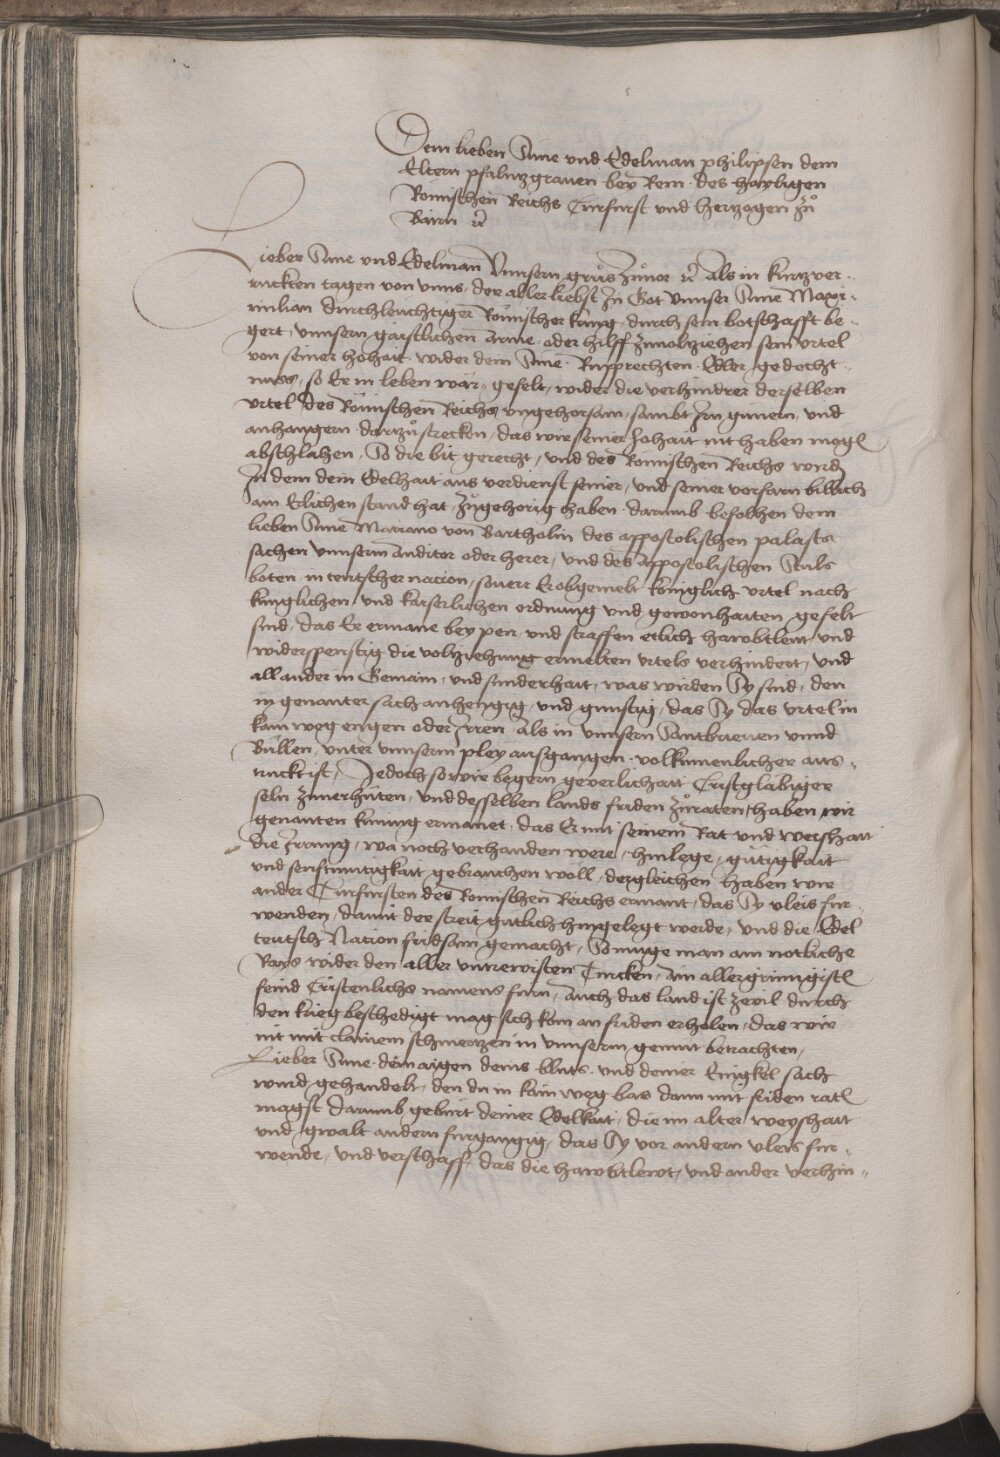 Dem lieben Sune und Edelman philipsen dem
Eltern pfalntzgraven bey Rein des hayligen
Romischen Reichs Curfurst und hertzogen zů
Bairn ꝛc
Lieber Sune und Edelman Unnsern grůs zůvor ꝛc Als in kurtzver-
ruckten tagen von unns, der aller liebst In Got Unnser Sune Maxi-
milian durchleuchtiger Römischer kunig, durch sein botschafft be-
gert, unnsern gaistlichen arme, oder hilff zuvolziehen sein urtel
von seiner hohait wider dem Sune Rupprechten Edler gedecht-
nuss, so Er in leben war, gefelt, wider die verhindrer derselben
urtel des Römischen Reichs ungehorsam, sambt Irn gunern, und
anhangern darzů strecken, das wir seiner hohait nit haben mogen
abschlahen, So die bit gerecht, und des Römischen Reichs wird
In dem dein Edelhait aus verdienst seiner, und seiner vorfarn billich
ain Erlichen stand hat, zůgehörig haben darumb befolhen dem
lieben Sune Mariano von Bartholin des appostolischen palasts
sachen unnserm auditor oder herer, und des Appostolischen Stuls
boten in teutscher nacion, soverr Er obgemelt kunglich urtel nach
kunglichen und kaiserlichen ordnung und gewonhaiten gefelt
sind, das Er ermane bey pen und straffen etlich hawbtleut und
widerspenstig die volziehung ermelten urtels verhindert, und
all ander in Gemain, und sunderhait, was wirden Sy sind, den
in genanter sach anhengig, und gunstig, das Sy das urtel in
kain weg engen oder Irren als in unnsern Santbrieven unnd
Bullen, unter unnserm pley ausgangen volkumenlicher aus-
truckt ist, Jedoch so wir begern geverlichait Cristglabiger
seln zuverhüten, und desselben lands friden zůraten, haben wir
genanten kunig ermanet, das Er mit seinem Rat und weishait
die Irrung, wa noch verhanden were, hinlege, gütigkait
und senftmutigkait gebrauchen wöll, dergleichen haben wir
ander Curfursten des Romischen Reichs ermant, das Sy vleis fur-
wenden, damit der streit gutlich hingelegt werde, und die Edel
teutsch Nation fridsam gemacht, So muge man ain notliche
Rays wider den aller untrewisten Turcken, Am allergrimigisten
feind Cristenlichs namens furn, Auch das land ist zevil durch
den krieg beschedigt mag sich kom an friden erholen, das wir
nit mit clainem schmertzen in unnserm gemut betrachten,
Lieber Sune dein aigen deins bluts und deiner Enigkel sach
wird gehandelt, den du in kain weg bas dann mit friden raten
magst darumb geburt deiner Edelkait, die im alter weyshait
und gwalt andern furgangig, das Sy vor andern vleis fur-
wende, und verschaff, das die hawbtlewt, und ander verhin-